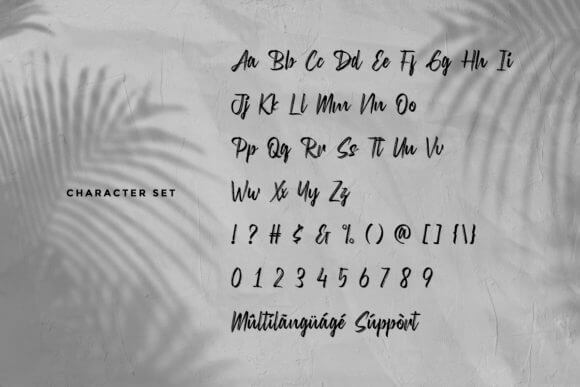 CHARACTER SET
Aa Bb Cc Dd Ee Ff Gg Hh Ii
Jj Kk Ll Mm Nn Oo
Pp Qq Rr Ss Tt Uu Vv
Ww Xx Yy Zz
! ? # $ & % ( ) @ [ ] { \ }
0 1 2 3 4 5 6 7 8 9
Múltilãngüágé Súppòrt